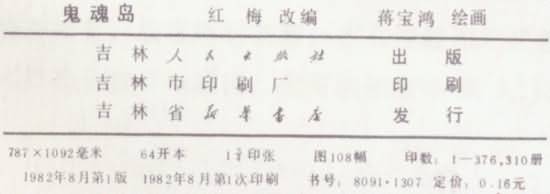 鬼魂岛 红梅改编 蒋宝鸿 绘画
吉林人民出版社 出版
吉林市印刷厂 印刷
吉林省新华书店 发行
787×1092毫米 64开本 1¾印张 图108幅 印数：1—376,310册
1982年8月第1版 1982年8月第1次印刷 书号：8091·1307 定价：0.16元